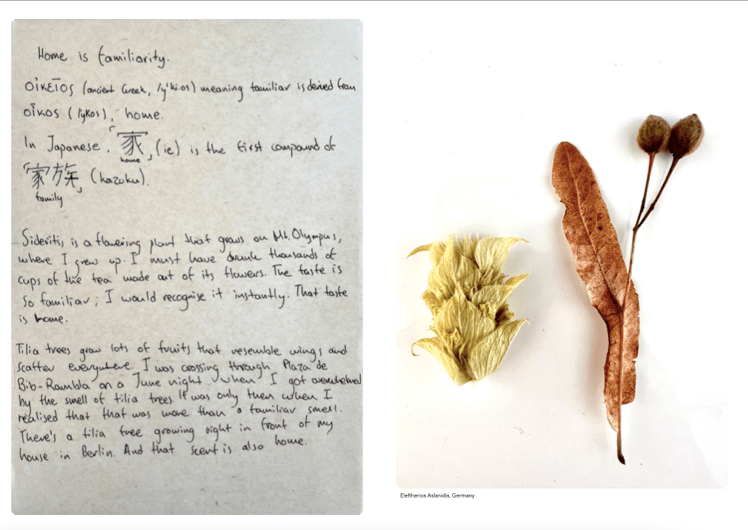 Home is familiarity.
οἰκεῖος (ancient Greek, /y'ki.os) meaning familiar is derived from
οἶκος (/ykos), home.
In Japanese, 「家」 (ie) is the first compound of
home
「家族」 (kazoku).
family
Sideritis is a flowering plant that grows on Mt. Olympus,
where I grew up. I must have drunk thousands of
cups of the tea made out of its flowers. The taste is
so familiar; I would recognise it instantly. That taste
is home.
Tilia trees grow lots of fruits that resemble wings and
scatter everywhere. I was crossing through Plaza de
Bib-Rambla on a June night when I got overwhelmed
by the smell of tilia trees. It was only then when I
realised that that was more than a familiar smell.
There's a tilia tree growing right in front of my
house in Berlin. And that scent is also home.
Eleftherios Aslanidis, Germany